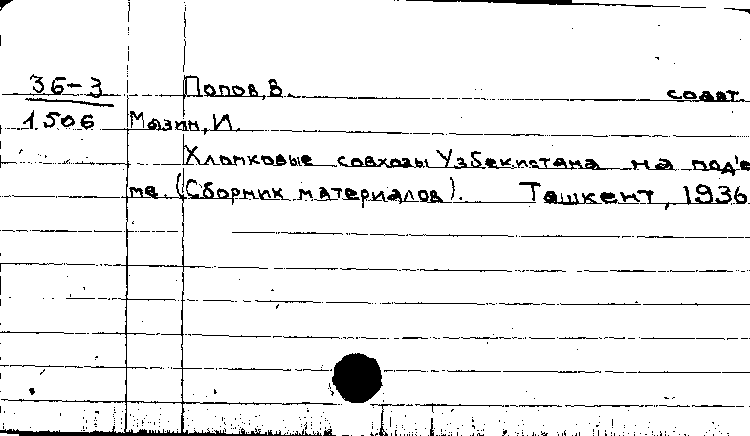 36-3 Попов, В. содат.
1506 Мазин, И.
Хлопковые совхозы Узбекистана на подъе
ме. (Сборник материалов). Ташкент, 1936